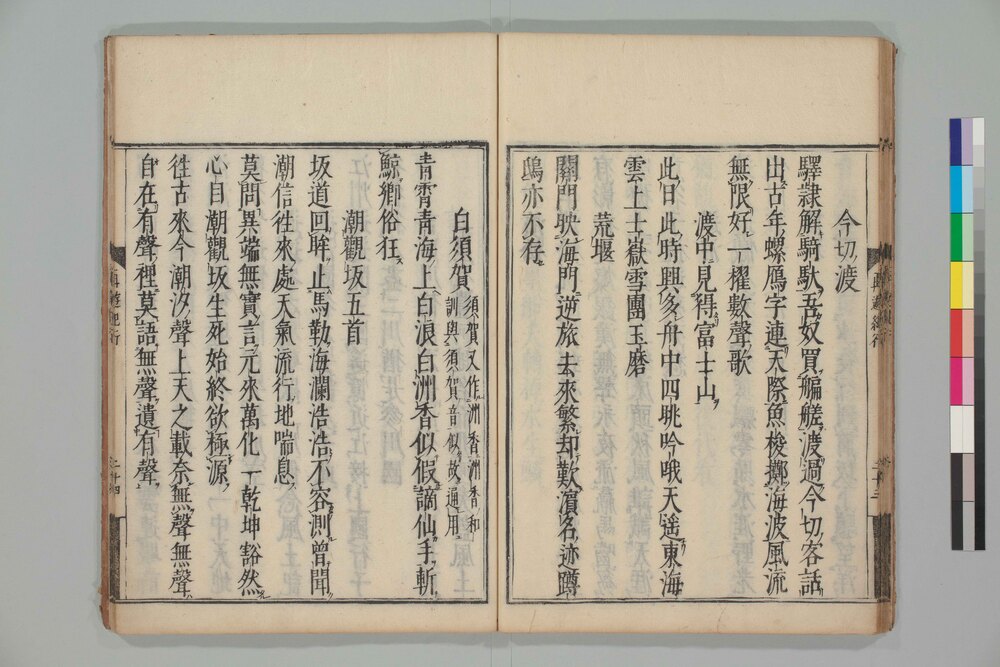 今切渡
驛隸解騎馱吾奴買艑艖渡過今切客話
出古年螺鴈字連天際魚梭擲海波風流
無限好一櫂數聲歌
渡中見得富士山
此日此時興多舟中四眺吟哦天遥東海
雲上士嶽雪團玉磨
荒堰
關門映海門逆旅去來繁却歎濱名迹蹲
鴟亦不存
白須賀 須賀又作洲香洲香和
訓與須賀音似故通用
青霄青海上白浪白洲香似假謫仙手斬
鯨鄉俗狂
潮觀坂五首
坂道回眸止馬勒海瀾浩浩不容測曾聞
潮信徃來處天氣流行地喘息
莫問異端無實言元來萬化一乾坤豁然
心目潮觀坂生死始終欲極源
徃古來今潮汐聲上天之載奈無聲無聲
自在有聲裡莫語無聲遺有聲